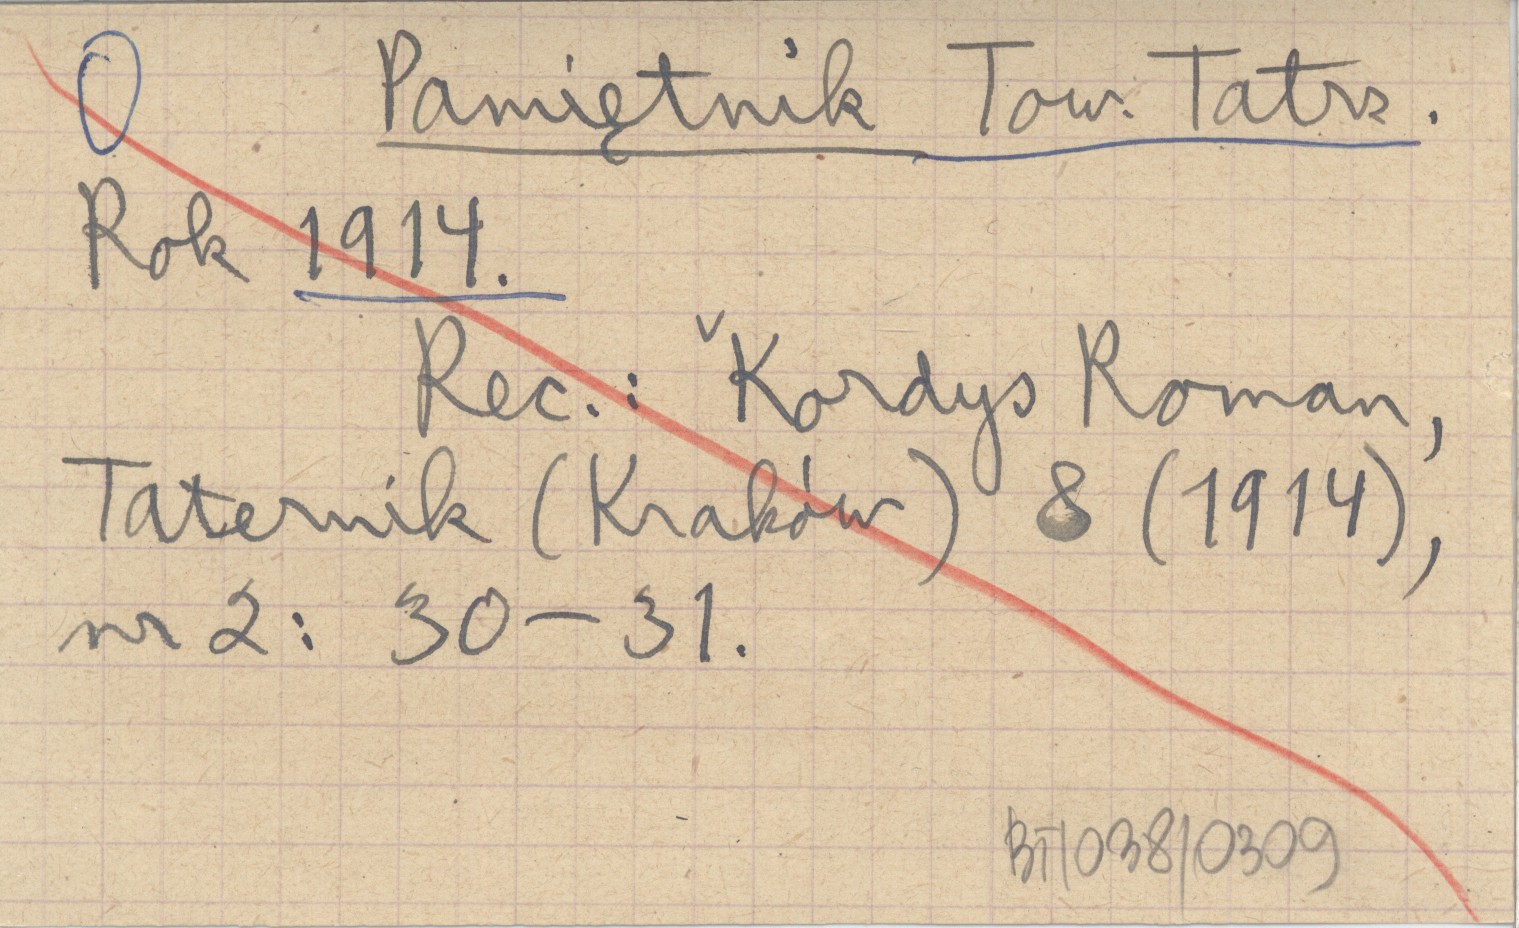 O Pamiętnik Tow. Tatrz.
Rok 1914.
Rec.: Kordys Roman,
Taternik (Kraków) 8 (1914),
nr 2: 30-31.
BT/038/0309